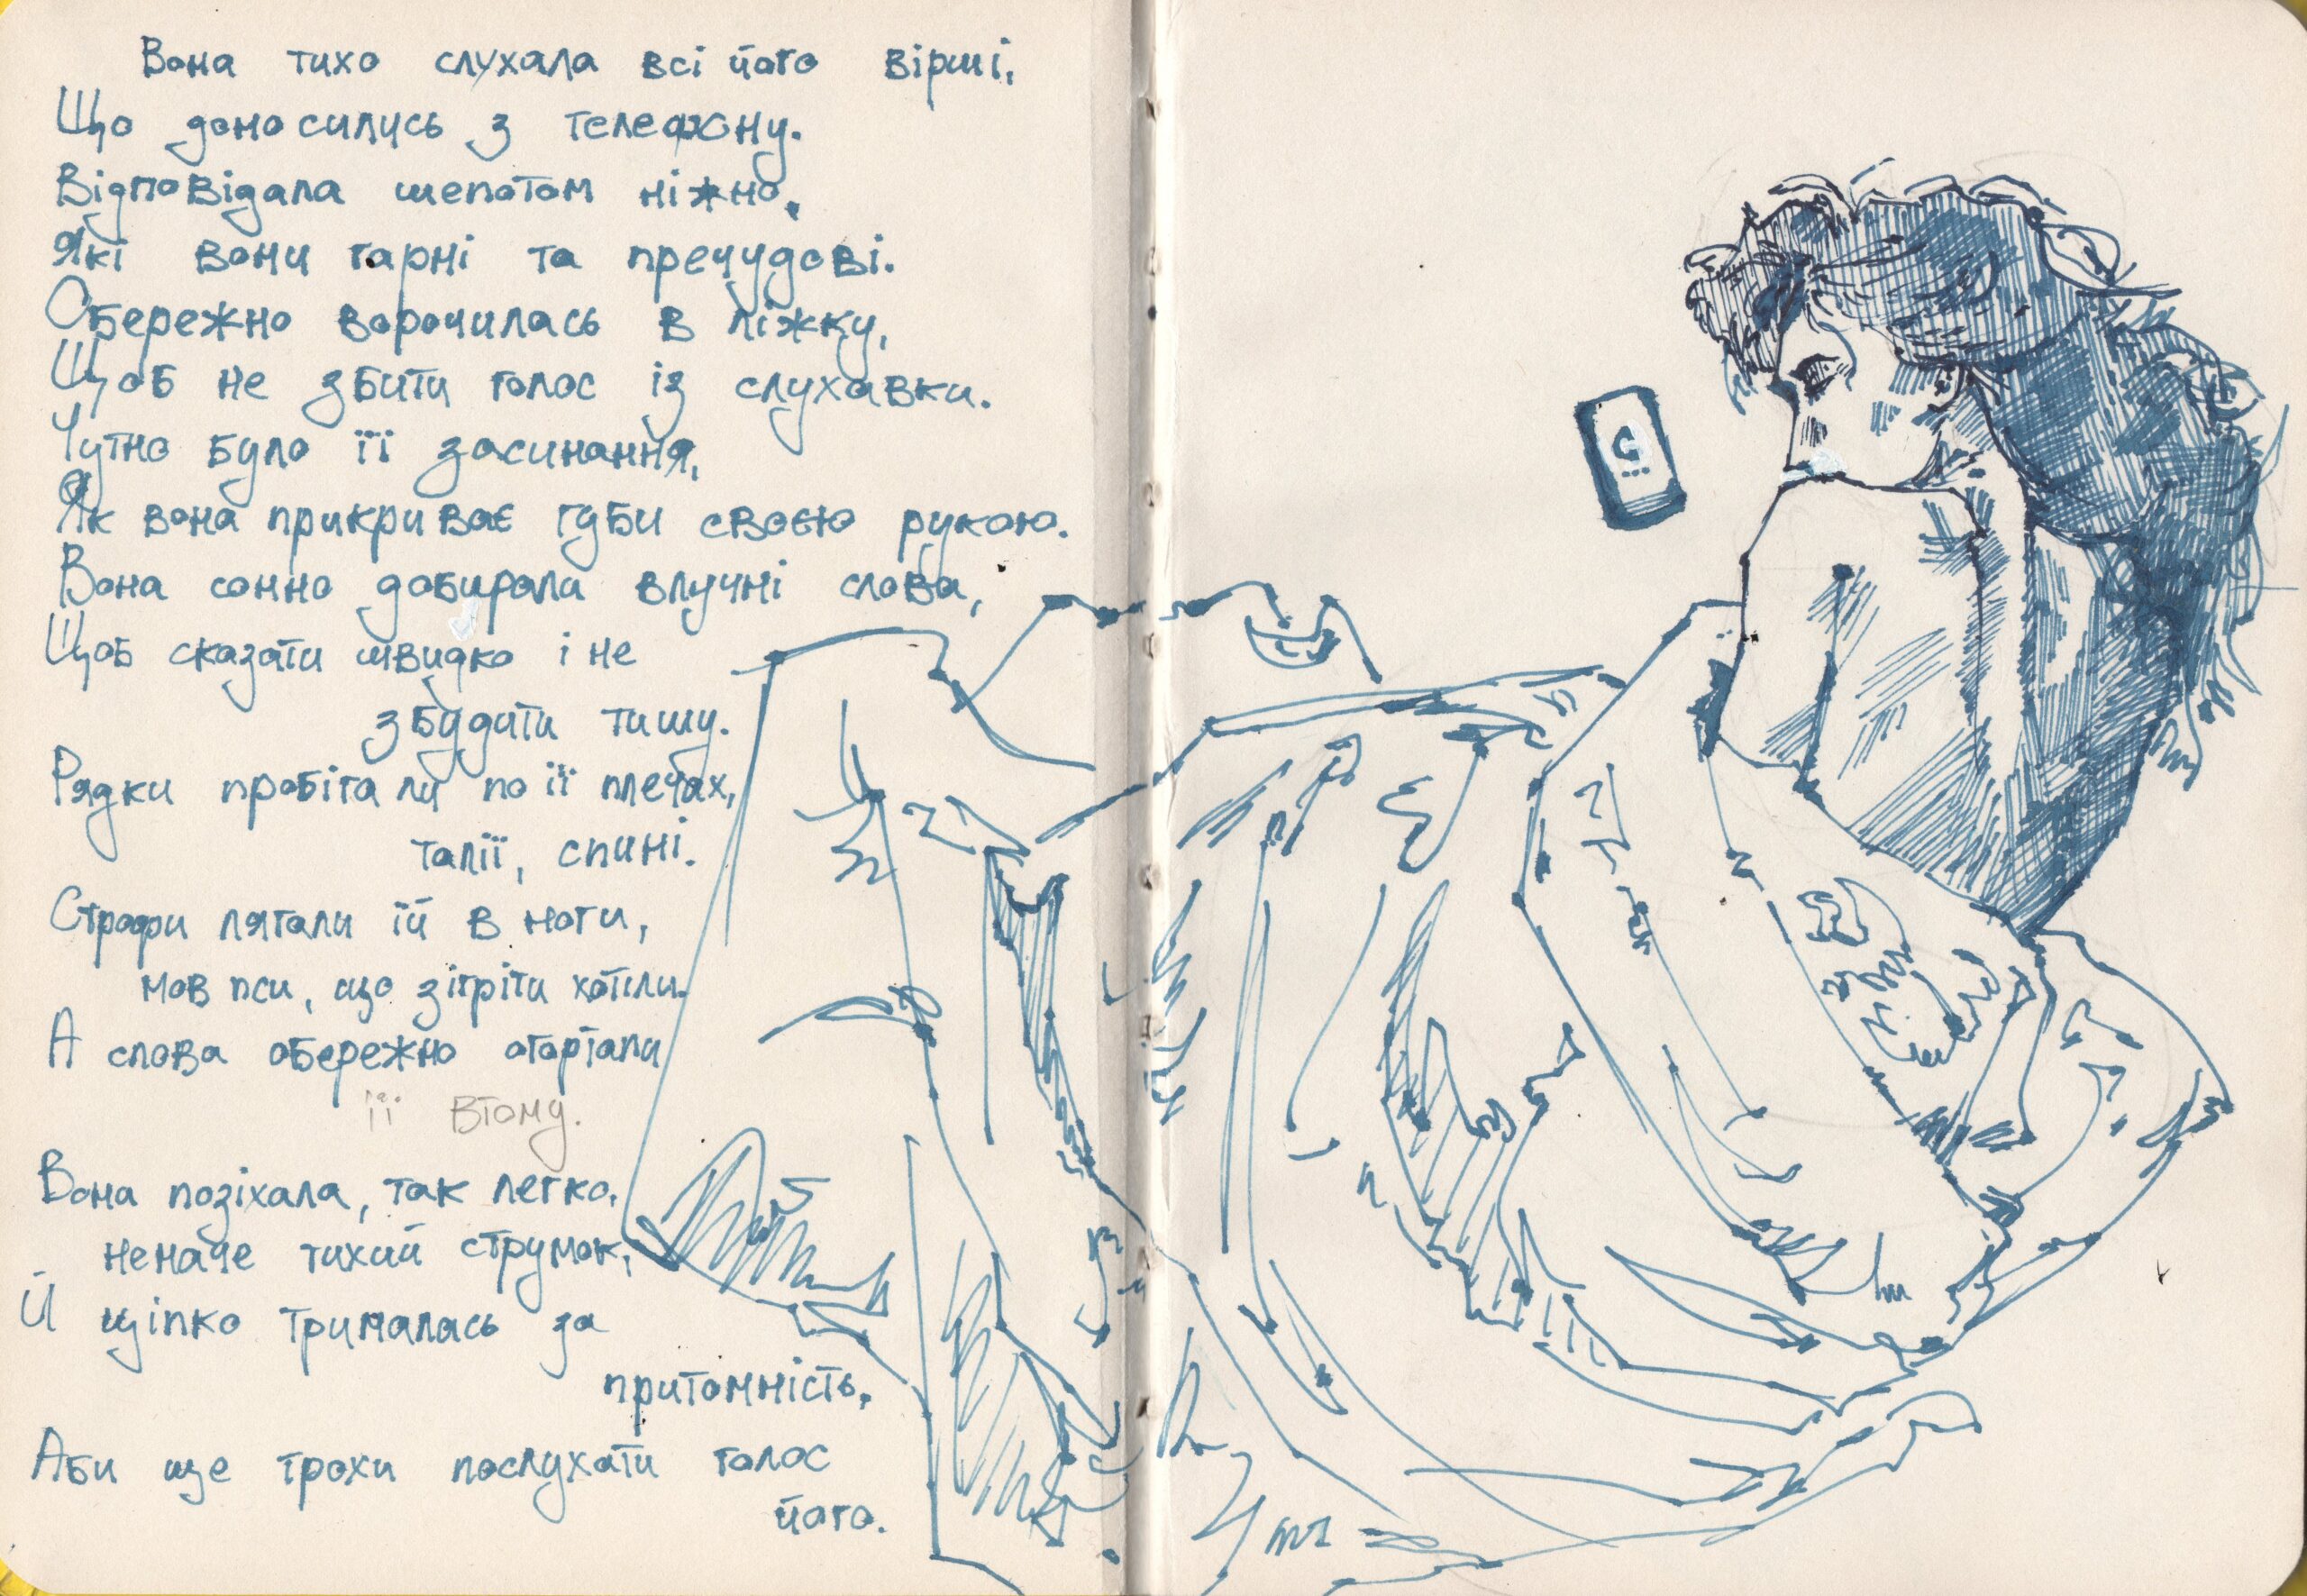 Вона тихо слухала всі його вірші,
Що доносились з телефону.
Відповідала шепотом ніжно,
Які вони гарні та пречудові.
Обережно ворочилась в ліжку,
Щоб не збити голос із слухавки.
Чутно було її засинання,
Як вона прикриває губи своєю рукою.
Вона сонно добирала влучні слова,
Щоб сказати швидко і не
збудити тишу.
Рядки пробігали по її плечах,
талії, спині.
Строфи лягали їй в ноги,
мов пси, що зігріти хотіли.
А слова обережно огортали
її втому.
Вона позіхала, так легко,
неначе тихий струмок,
Й ціпко трималась за
притомність,
Аби ще трохи послухати голос
його.